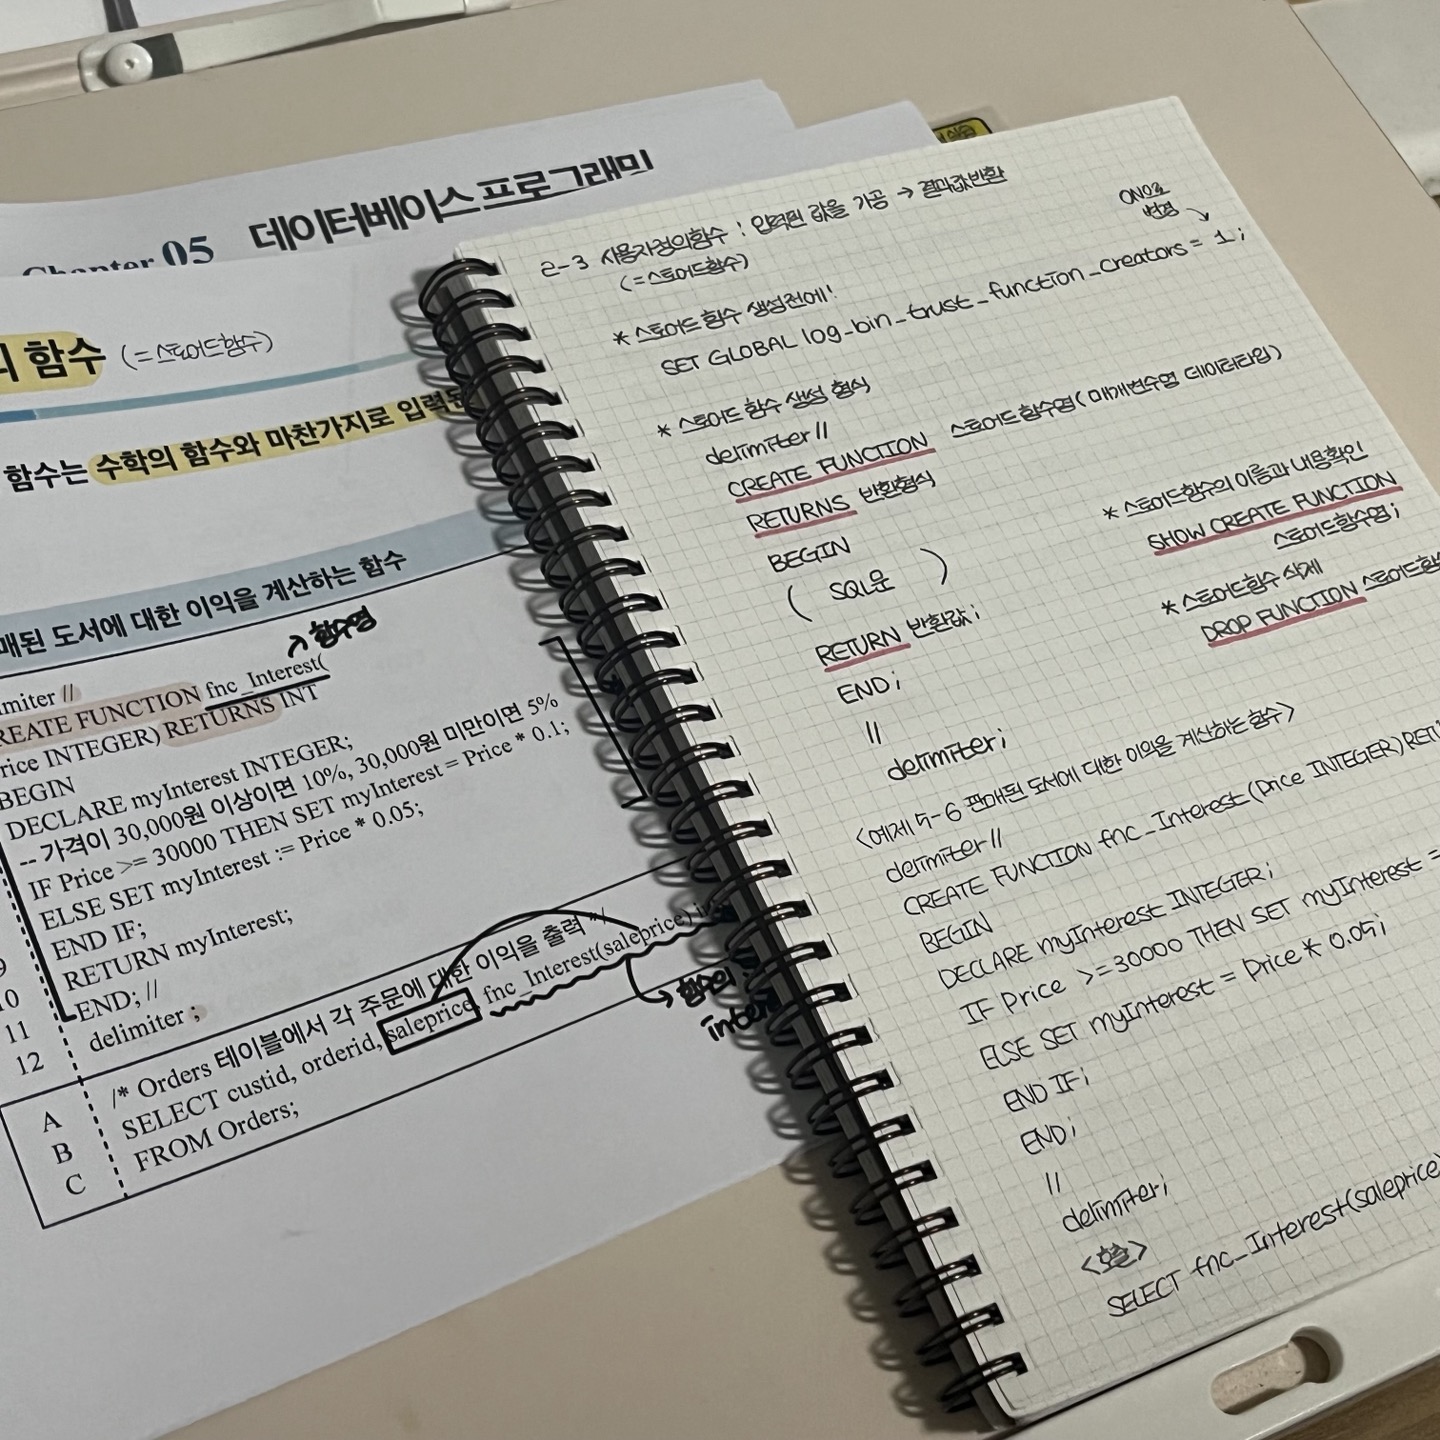 Chapter 05
데이터베이스 프로그래밍
의 함수 (=스토어드함수)
함수는 수학의 함수와 마찬가지로 입력된
매된 도서에 대한 이익을 계산하는 함수
→ 함수명
limiter //
REATE FUNCTION fnc_Interest(
rice INTEGER) RETURNS INT
BEGIN
DECLARE myInterest INTEGER;
-- 가격이 30,000원 이상이면 10%, 30,000원 미만이면 5%
IF Price >= 30000 THEN SET myInterest = Price * 0.1;
ELSE SET myInterest := Price * 0.05;
END IF;
9 RETURN myInterest;
10 END; //
11 delimiter ;
12
/* Orders 테이블에서 각 주문에 대한 이익을 출력 */
A SELECT custid, orderid, saleprice, fnc_Interest(saleprice)
B FROM Orders;
C
→ 함수의
inter
2-3 사용자정의함수 : 입력된 값을 가공 → 결과값반환
(=스토어드함수)
ON으로
변경
* 스토어드 함수 생성전에!
SET GLOBAL log_bin_trust_function_creators = 1;
* 스토어드 함수 생성 형식
delimiter //
CREATE FUNCTION 스토어드함수명(매개변수명 데이터타입)
RETURNS 반환형식
BEGIN
( SQL문 )
RETURN 반환값;
END;
//
delimiter;
* 스토어드함수의 이름과 내용확인
SHOW CREATE FUNCTION
스토어드함수명;
* 스토어드함수 삭제
DROP FUNCTION 스토어드함수
<예제 5-6 판매된 도서에 대한 이익을 계산하는 함수>
delimiter //
CREATE FUNCTION fnc_Interest(Price INTEGER) RET
BEGIN
DECLARE myInterest INTEGER;
IF Price >=30000 THEN SET myInterest =
ELSE SET myInterest = Price * 0.05;
END IF;
END;
//
delimiter;
<호출>
SELECT fnc_Interest(saleprice)